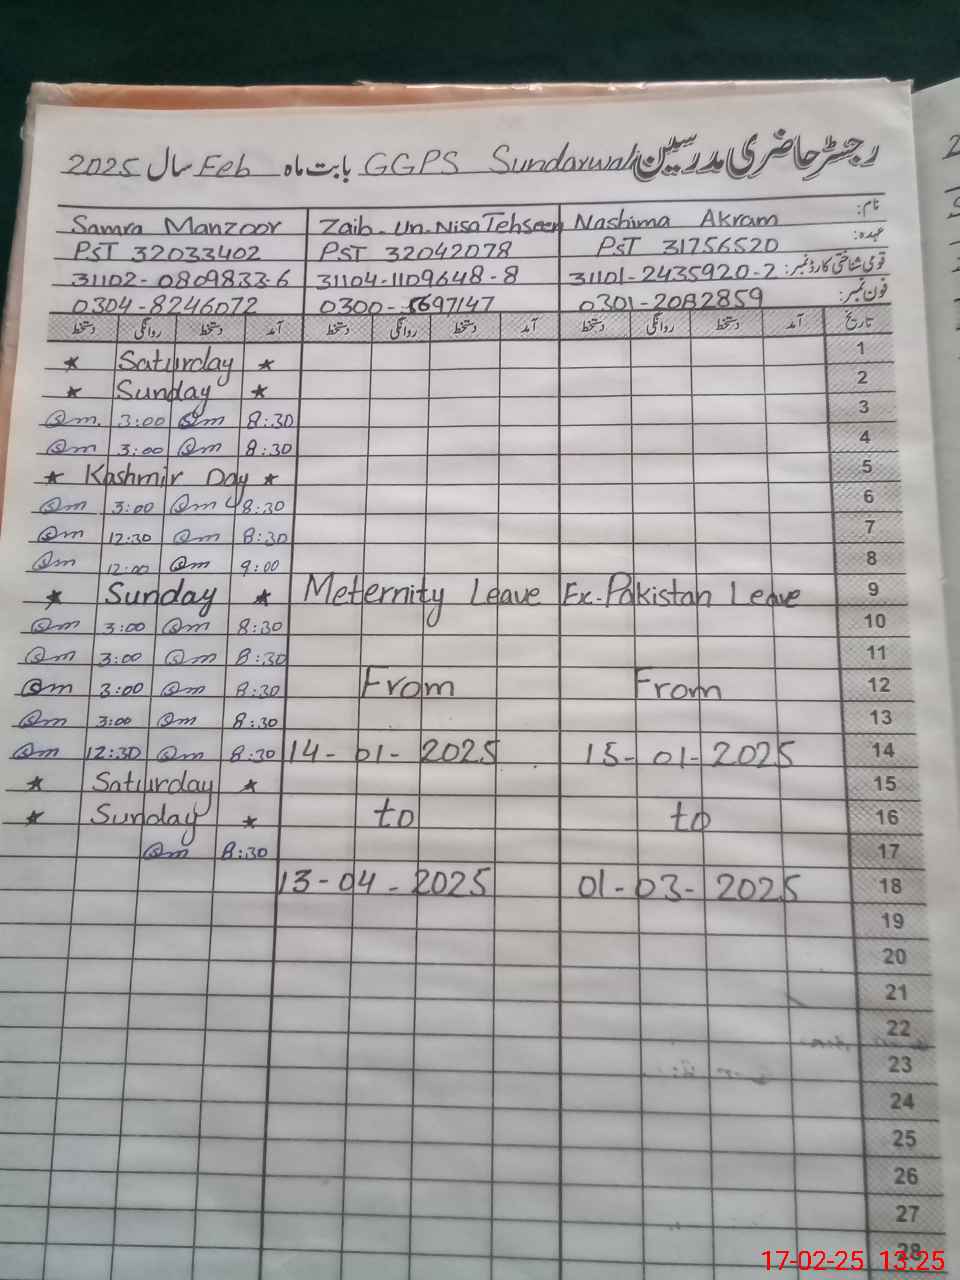 رجسٹر حاضری مدرسین GGPS Sundarwali بابت ماہ Feb سال 2025
نام: Nashima Akram Zaib-Un-Nisa Tehseen Samra Manzoor
عہدہ: PST 31756520 PST 32042078 PST 32033402
قومی شناختی کارڈ نمبر: 31101-2435920-2 31104-1109648-8 31102-0809833-6
فون نمبر: 0301-2082859 0300-5697147 0304-8246072
تاریخ آمد دستخط روانگی دستخط آمد دستخط روانگی دستخط آمد دستخط روانگی دستخط
1 * Saturday *
2 * Sunday *
3 8:30 3:00
4 8:30 3:00
5 * Kashmir Day *
6 8:30 3:00
7 8:30 12:30
8 9:00 12:00
9 * Sunday * Meternity Leave Ex-Pakistan Leave
10 8:30 3:00
11 8:30 3:00
12 8:30 3:00 From From
13 8:30 3:00
14 8:30 12:30 14-01-2025 15-01-2025
15 * Saturday *
16 * Sunday * to to
17 8:30
18 13-04-2025 01-03-2025
19
20
21
22
23
24
25
26
27
28
17-02-25 13:25